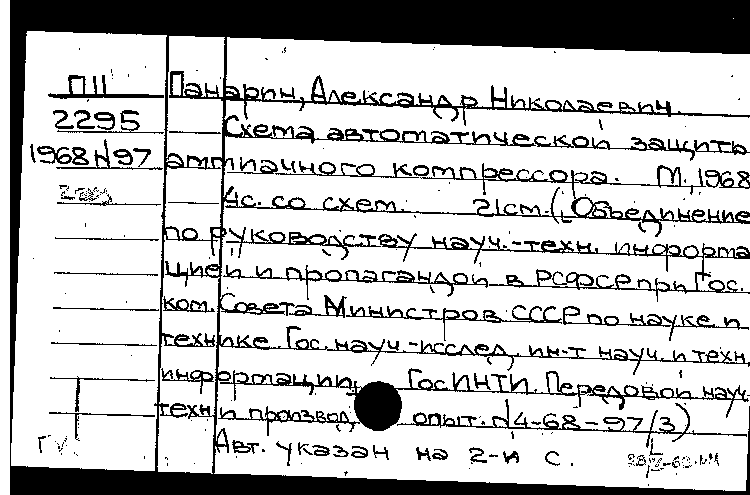 П11 Панарин, Александр Николаевич.
2295 Схема автоматической защиты
1968 №97 аммиачного компрессора. М., 1968
4с. со схем. 21см. (Объединение
по руководству науч.-техн. информа
цией и пропагандой в РСФСР при Гос.
ком. Совета Министров СССР по науке и
технике. Гос. науч.-исслед. ин-т науч. и техн.
информации. ГосИНТИ. Передовой науч.
техн. и производ. опыт. №4-68-97/3)
Авт. указан на 2-й с.